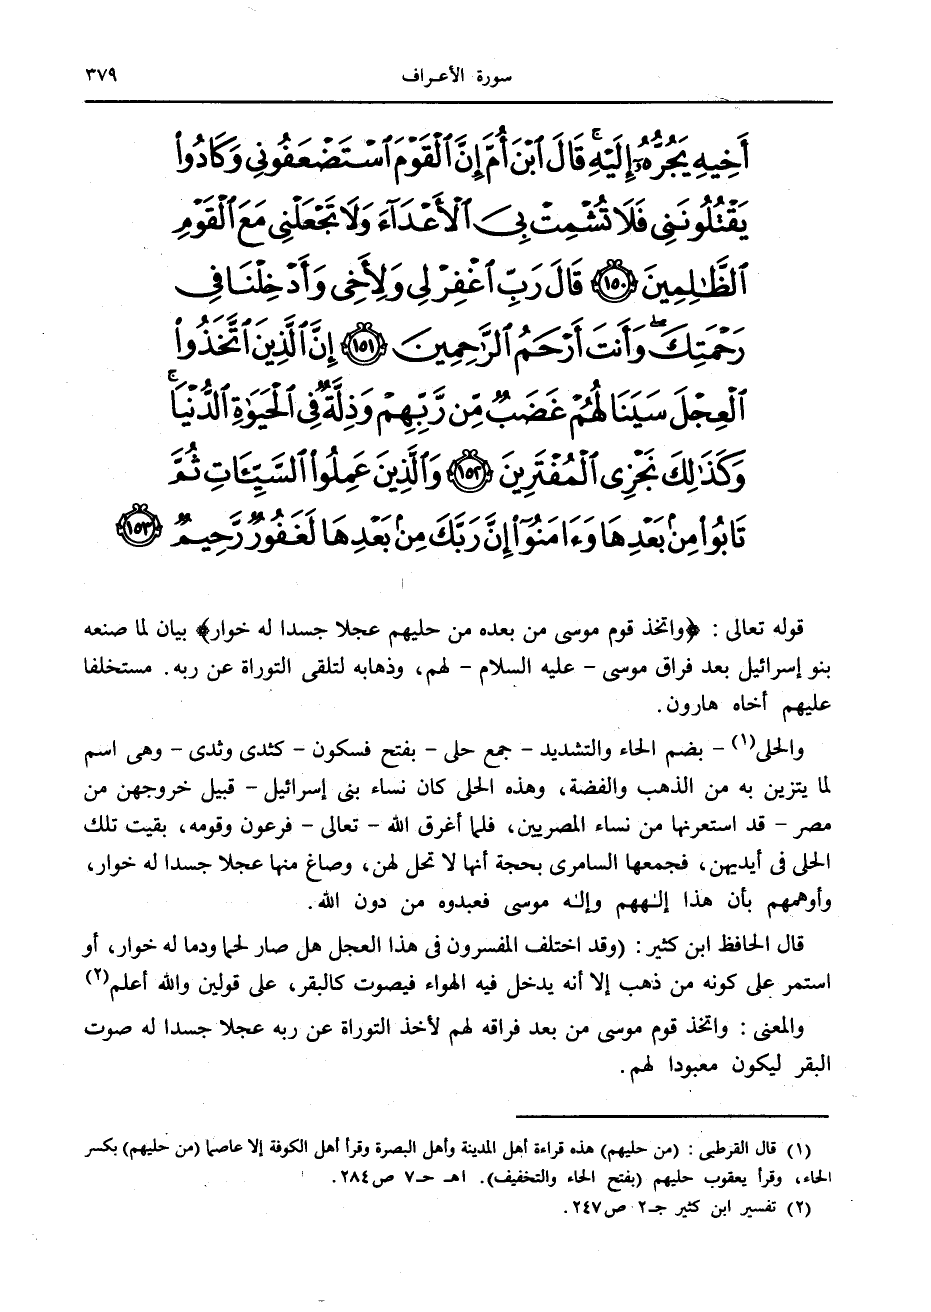 سورة الأعراف ٣٧٩
أَخِيهِ يَجُرُّهُۥٓ إِلَيْهِۚ قَالَ ٱبْنَ أُمَّ إِنَّ ٱلْقَوْمَ ٱسْتَضْعَفُونِى وَكَادُواْ
يَقْتُلُونَنِى فَلَا تُشْمِتْ بِىَ ٱلْأَعْدَآءَ وَلَا تَجْعَلْنِى مَعَ ٱلْقَوْمِ
ٱلظَّٰلِمِينَ ١٥٠ قَالَ رَبِّ ٱغْفِرْ لِى وَلِأَخِى وَأَدْخِلْنَا فِى
رَحْمَتِكَۖ وَأَنتَ أَرْحَمُ ٱلرَّٰحِمِينَ ١٥١ إِنَّ ٱلَّذِينَ ٱتَّخَذُواْ
ٱلْعِجْلَ سَيَنَالُهُمْ غَضَبٌ مِّن رَّبِّهِمْ وَذِلَّةٌ فِى ٱلْحَيَوٰةِ ٱلدُّنْيَاۚ
وَكَذَٰلِكَ نَجْزِى ٱلْمُفْتَرِينَ ١٥٢ وَٱلَّذِينَ عَمِلُواْ ٱلسَّيِّئَاتِ ثُمَّ
تَابُواْ مِنۢ بَعْدِهَا وَءَامَنُوٓاْ إِنَّ رَبَّكَ مِنۢ بَعْدِهَا لَغَفُورٌ رَّحِيمٌ ١٥٣
قوله تعالى : ﴿واتخذ قوم موسى من بعده من حليهم عجلا جسدا له خوار﴾ بيان لما صنعه
بنو إسرائيل بعد فراق موسى – عليه السلام – لهم، وذهابه لتلقى التوراة عن ربه. مستخلفا
عليهم أخاه هارون.
والحلى(١) – بضم الحاء والتشديد – جمع حلى – بفتح فسكون – كثدى وثدى – وهى اسم
لما يتزين به من الذهب والفضة، وهذه الحلى كان نساء بنى إسرائيل – قبيل خروجهن من
مصر – قد استعرنها من نساء المصريين، فلما أغرق الله – تعالى – فرعون وقومه، بقيت تلك
الحلى فى أيديهن، فجمعها السامرى بحجة أنها لا تحل لهن، وصاغ منها عجلا جسدا له خوار،
وأوهمهم بأن هذا إلـٰههم وإلـٰه موسى فعبدوه من دون الله.
قال الحافظ ابن كثير : (وقد اختلف المفسرون فى هذا العجل هل صار لحما ودما له خوار، أو
استمر على كونه من ذهب إلا أنه يدخل فيه الهواء فيصوت كالبقر، على قولين والله أعلم(٢)
والمعنى : واتخذ قوم موسى من بعد فراقه لهم لأخذ التوراة عن ربه عجلا جسدا له صوت
البقر ليكون معبودا لهم.
(١) قال القرطبى : (من حليهم) هذه قراءة أهل المدينة وأهل البصرة وقرأ أهل الكوفة إلا عاصما (من حليهم) بكسر
الحاء، وقرأ يعقوب حليهم (بفتح الحاء والتخفيف). اهـ حـ٧ ص٢٨٤.
(٢) تفسير ابن كثير جـ٢ ص٢٤٧.